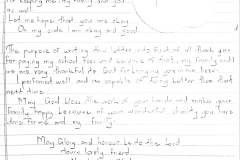 for keeping me, my family and you
as well.
Let me hope that you are okay.
On my side I am okay and good.
The purpose of writing this letter is to first of all thank you
for paying my school fees and because of that, my family and I
we are very thankful to God for bringing you in our lives.
I performed well and am capable of doing better than that
next time.
May God bless the work of your hands and make your
family happy because of your wonderful charity you have
done for me and my family.
May Glory and honour be to the Lord
Yours lovely friend